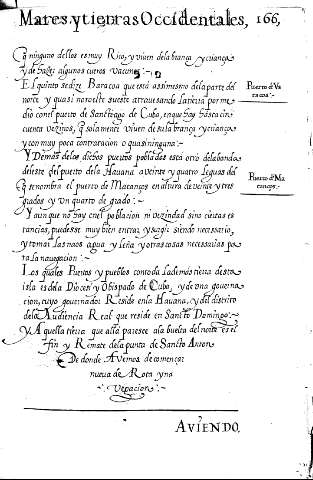 Mares, y tierras Occidentales, 166,
q̃ ninguno dellos es muy Rico, y viven de labrança y criança
y de hazer algunos cueros vacunos
El quinto se dize Baracoa que está assimesmo dela parte del
norte y quasi noroeste sueste atravesando la tierra por me
dio con el puerto de Sanctiago de Cubo, en que hay hasta cin
cuenta vezinos, q̃ sola mente viven de sulabrança y criança
y con muy poca contratacion o quasi ninguna
Puerto de Va
racoa
Y Demas de los dichos puertos poblados esta otro dela banda
del este del puerto dela Havana a veinte y quatro leguas del
Que se nombra el puerto de Matanças en altura de veinte y tres
grados y un quarto de grado
Puerto de Ma
tanças
Y aun que no hay en el poblacion ni vezindad sino ciertas es
tancias, puedesse muy bien entrar y surgir siendo necessario,
y tomar las naos agua y leña y otras cosas necessarias pa
ra la navegacion
Los quales Puertos y pueblos con toda la demas tierra desta
isla es dela Diocesi y Obispado de Cubo, y de una governa
cion, cuyo governador Reside en la Havana, y del districto
dela Audiencia Real que reside en Sancto Domingo
Y Aquella tierra que alla paresce ala buelta del norte es el
fin y Remate dela punta de Sancto Anton
De donde Avemos de començar
nueva de Rota y na
vegacion
AVIENDO